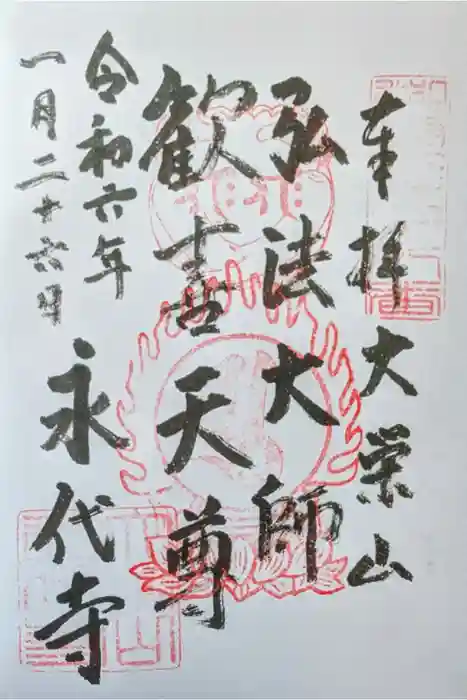 奉拝 大栄山
弘法大師
歓喜天尊
令和六年
一月二十六日
永代寺